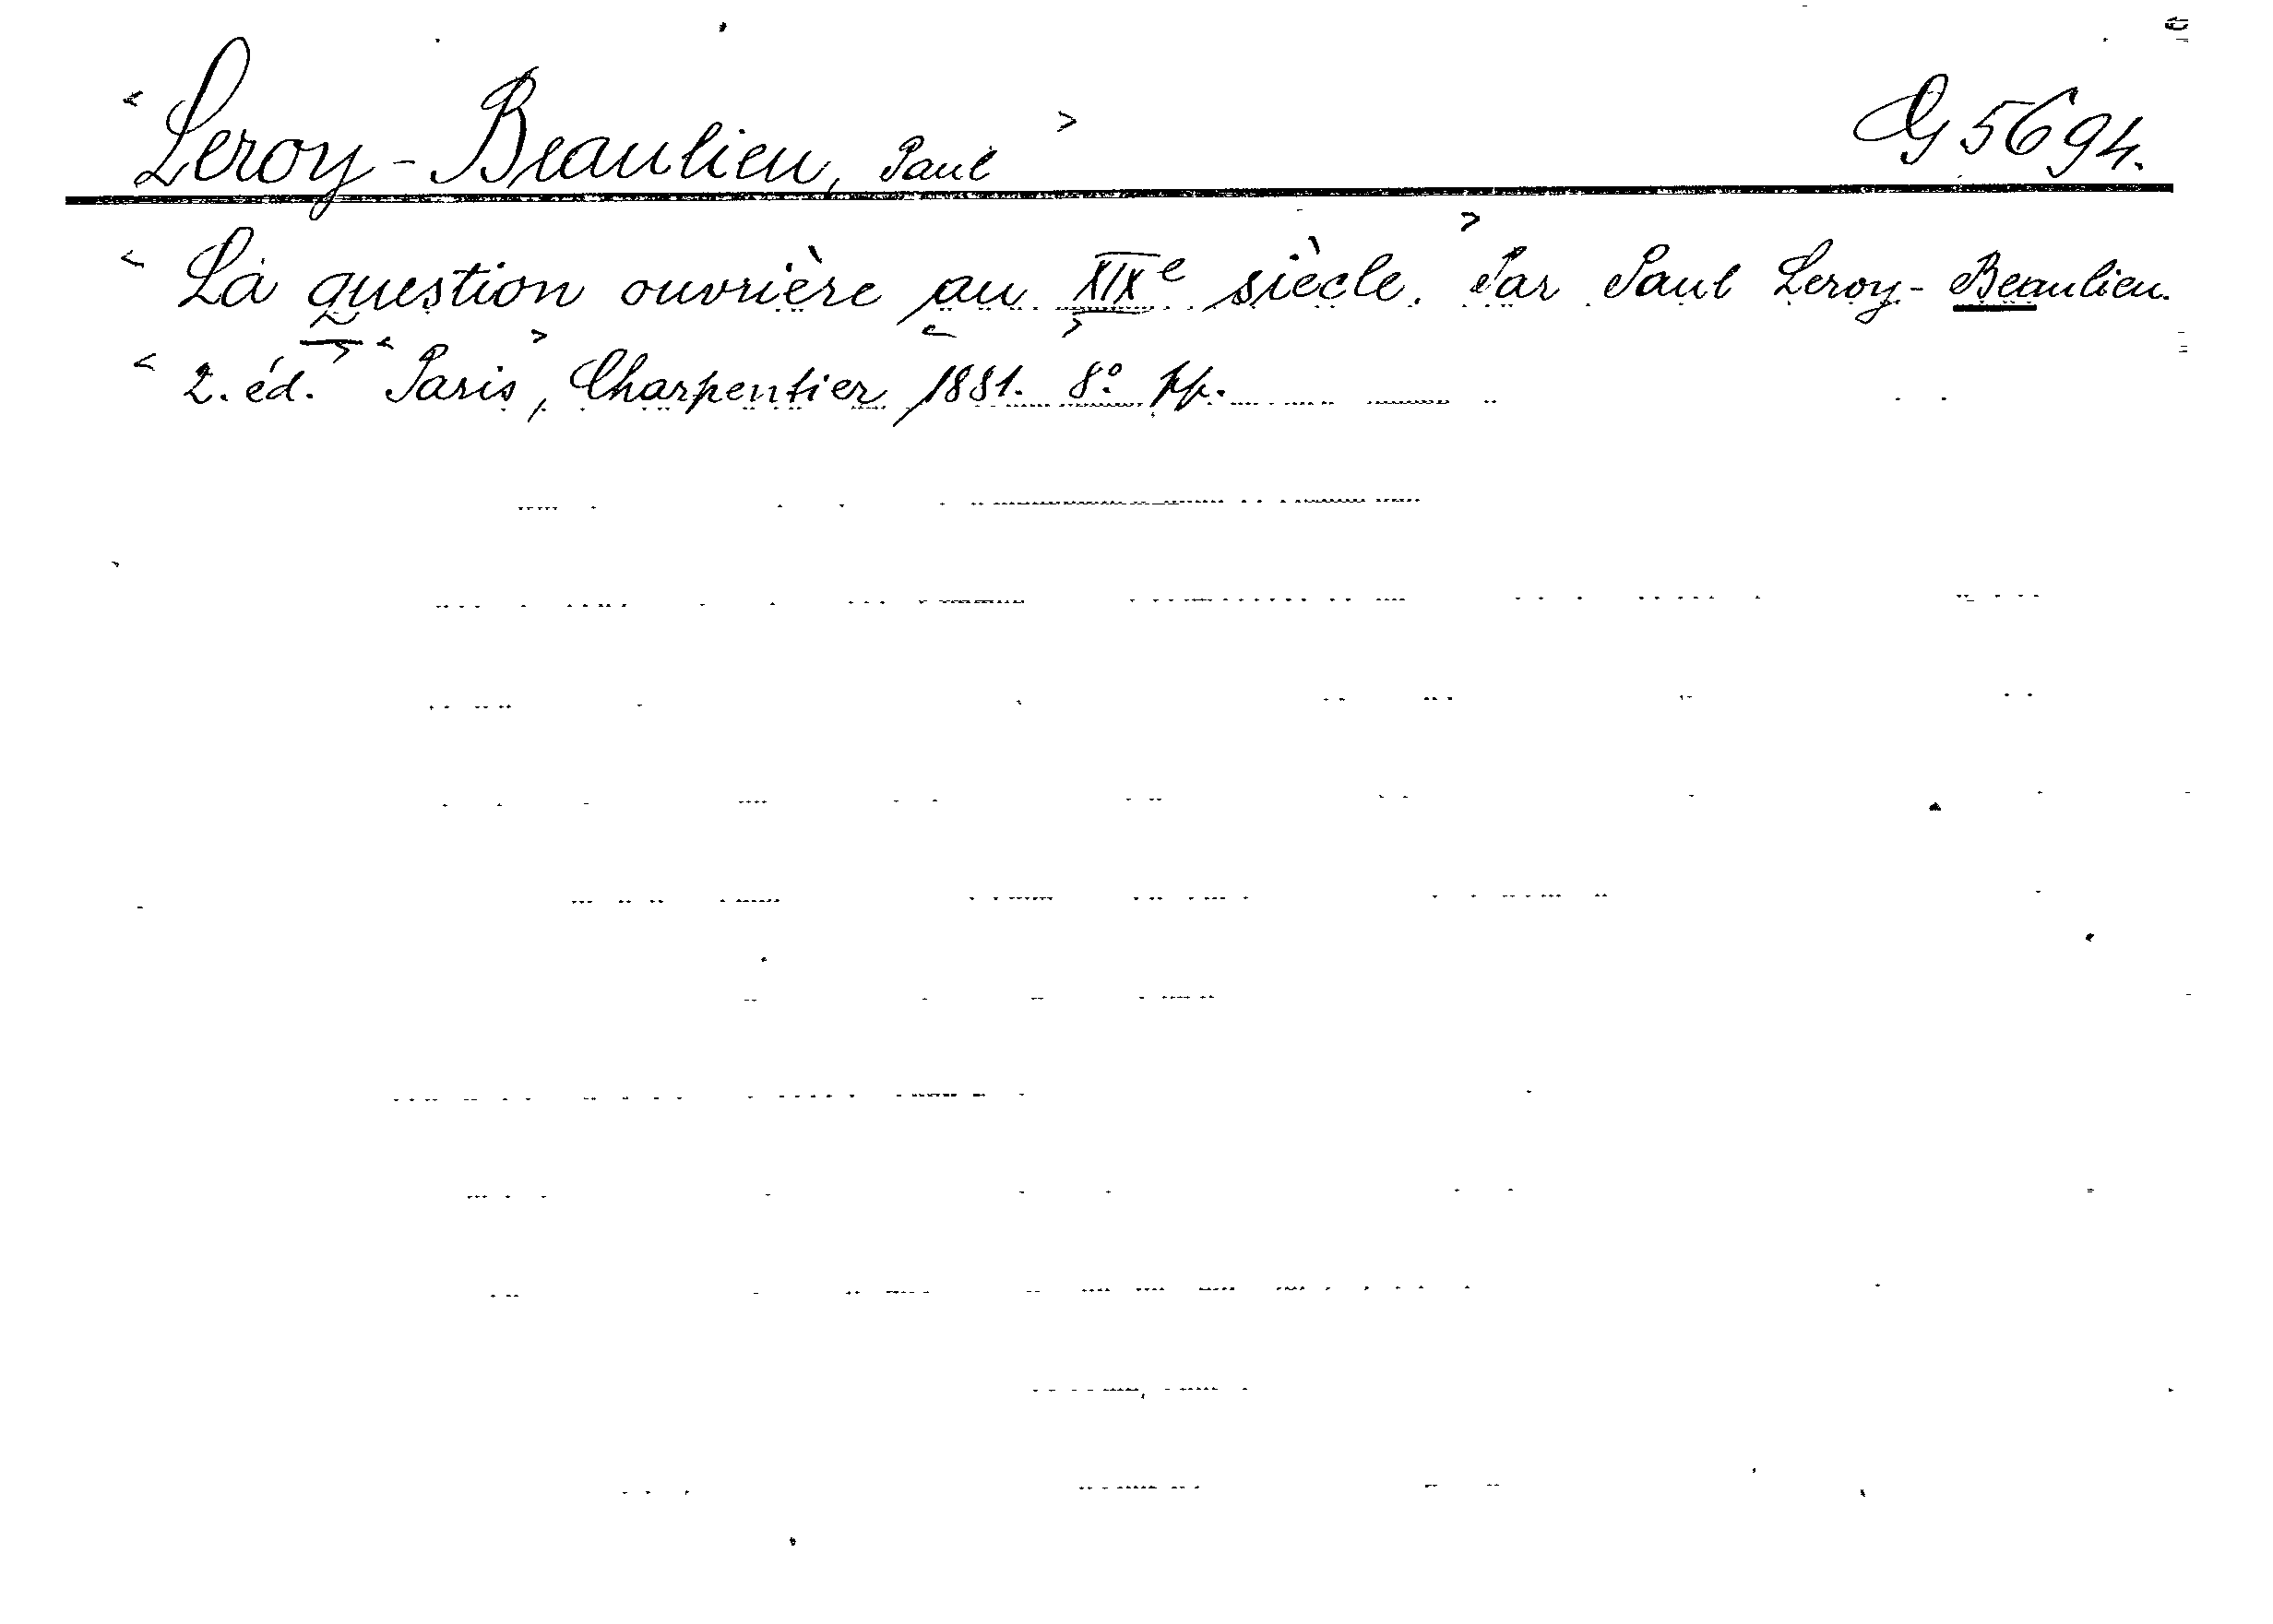 < Leroy-Beaulieu, Paul > G 5694.
< La question ouvrière au XIXe siècle. > Par Paul Leroy-Beaulieu.
< 2. éd. > < Paris >, Charpentier, < 1881. > 8° pp.